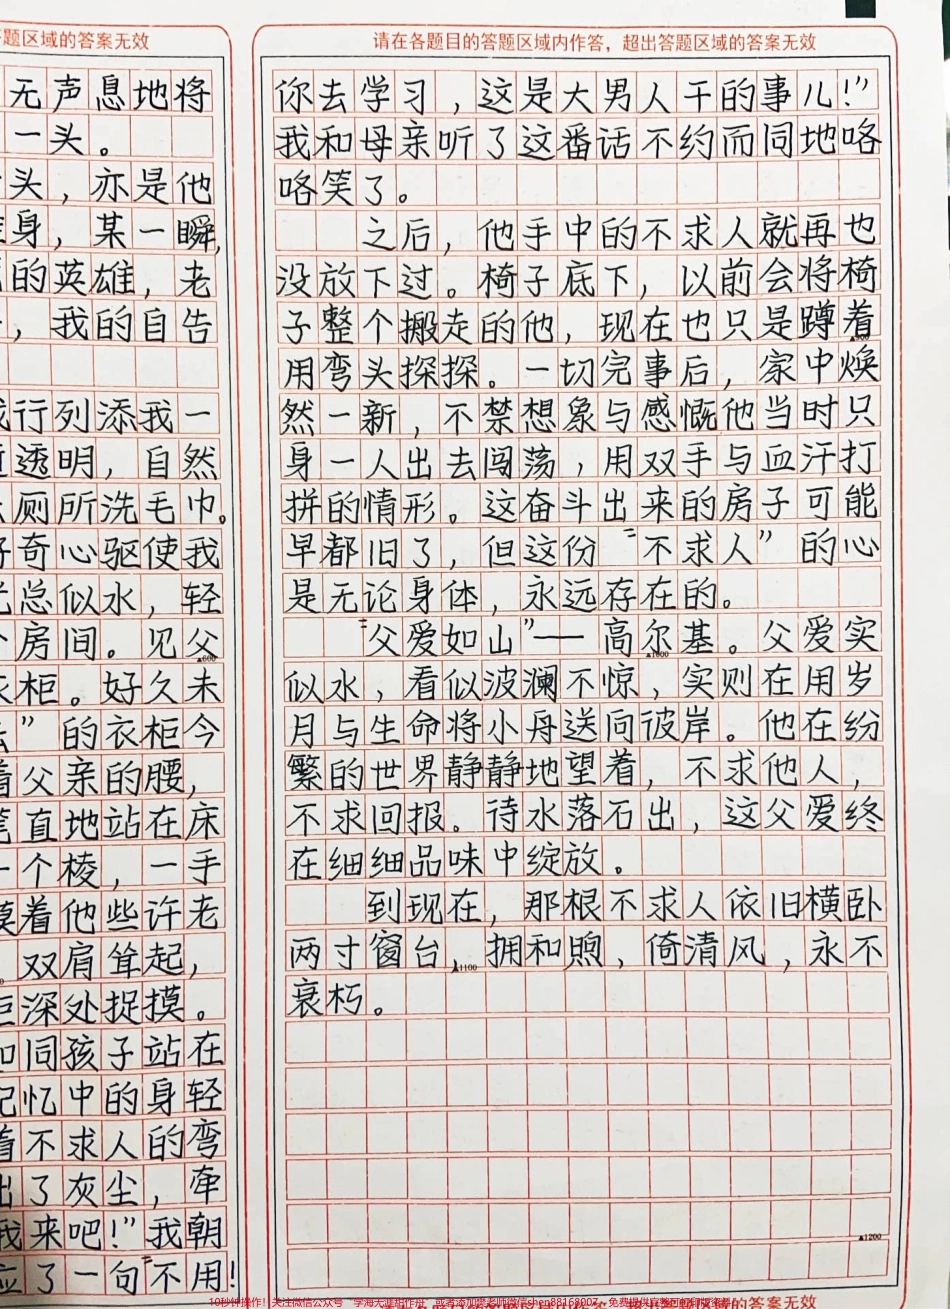 题区域的答案无效
无声息地将
一头。
头，亦是他
身，某一瞬，
的英雄，老
，我的自告
行列添我一
透明，自然
厕所洗毛巾。
好奇心驱使我
总似水，轻
房间。见父
▲600
衣柜。好久未
”的衣柜今
着父亲的腰，
笔直地站在床
一个棱，一手
摸着他些许老
双肩耸起，
柜深处捉摸。
如同孩子站在
记忆中的身轻
着不求人的弯
出了灰尘，牵
我来吧！”我朝
应了一句“不用！
请在各题目的答题区域内作答，超出答题区域的答案无效
你去学习，这是大男人干的事儿！”
我和母亲听了这番话不约而同地咯
咯笑了。
之后，他手中的不求人就再也
没放下过。椅子底下，以前会将椅
子整个搬走的他，现在也只是蹲着
▲900
用弯头探探。一切完事后，家中焕
然一新，不禁想象与感慨他当时只
身一人出去闯荡，用双手与血汗打
拼的情形。这奋斗出来的房子可能
早都旧了，但这份“不求人”的心
是无论身体，永远存在的。
“父爱如山”——高尔基。父爱实
▲1000
似水，看似波澜不惊，实则在用岁
月与生命将小舟送向彼岸。他在纷
繁的世界静静地望着，不求他人，
不求回报。待水落石出，这父爱终
在细细品味中绽放。
到现在，那根不求人依旧横卧
两寸窗台，拥和煦，倚清风，永不
▲1100
衰朽。
▲1200